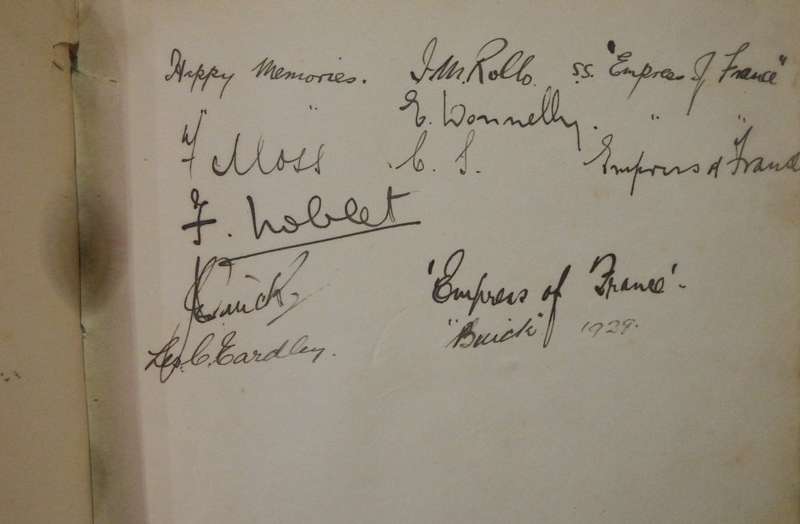 Happy Memories. J.M. Rollo. s.s. "Empress of France"
" " E. Donnelly. " "
F Moss C. S. Empress of France
F. Noblet
Quick 'Empress of France'.
"Buick" 1929.
C. Eardley.